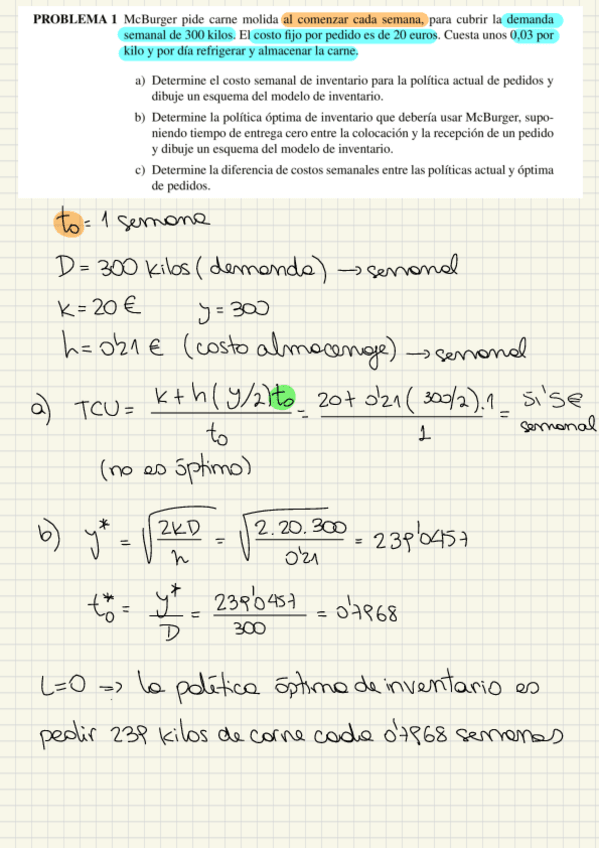 PROBLEMA 1 McBurger pide carne molida al comenzar cada semana, para cubrir la demanda
semanal de 300 kilos. El costo fijo por pedido es de 20 euros. Cuesta unos 0,03 por
kilo y por día refrigerar y almacenar la carne.
a) Determine el costo semanal de inventario para la política actual de pedidos y
dibuje un esquema del modelo de inventario.
b) Determine la política óptima de inventario que debería usar McBurger, supo-
niendo tiempo de entrega cero entre la colocación y la recepción de un pedido
y dibuje un esquema del modelo de inventario.
c) Determine la diferencia de costos semanales entre las políticas actual y óptima
de pedidos.
t₀ = 1 semana
D = 300 kilos (demanda) → semanal
k = 20 € y = 300
h = 0'21 € (costo almacenaje) → semanal
a) TCU = (k + h(y/2)t₀)/t₀ = (20 + 0'21(300/2).1)/1 = 51'5€ semanal
(no es óptimo)
b) y* = √(2KD/h) = √(2.20.300/0'21) = 239'0457
t₀* = y*/D = 239'0457/300 = 0'7968
L=0 => la política óptima de inventario es
pedir 239 kilos de carne cada 0'7968 semanas